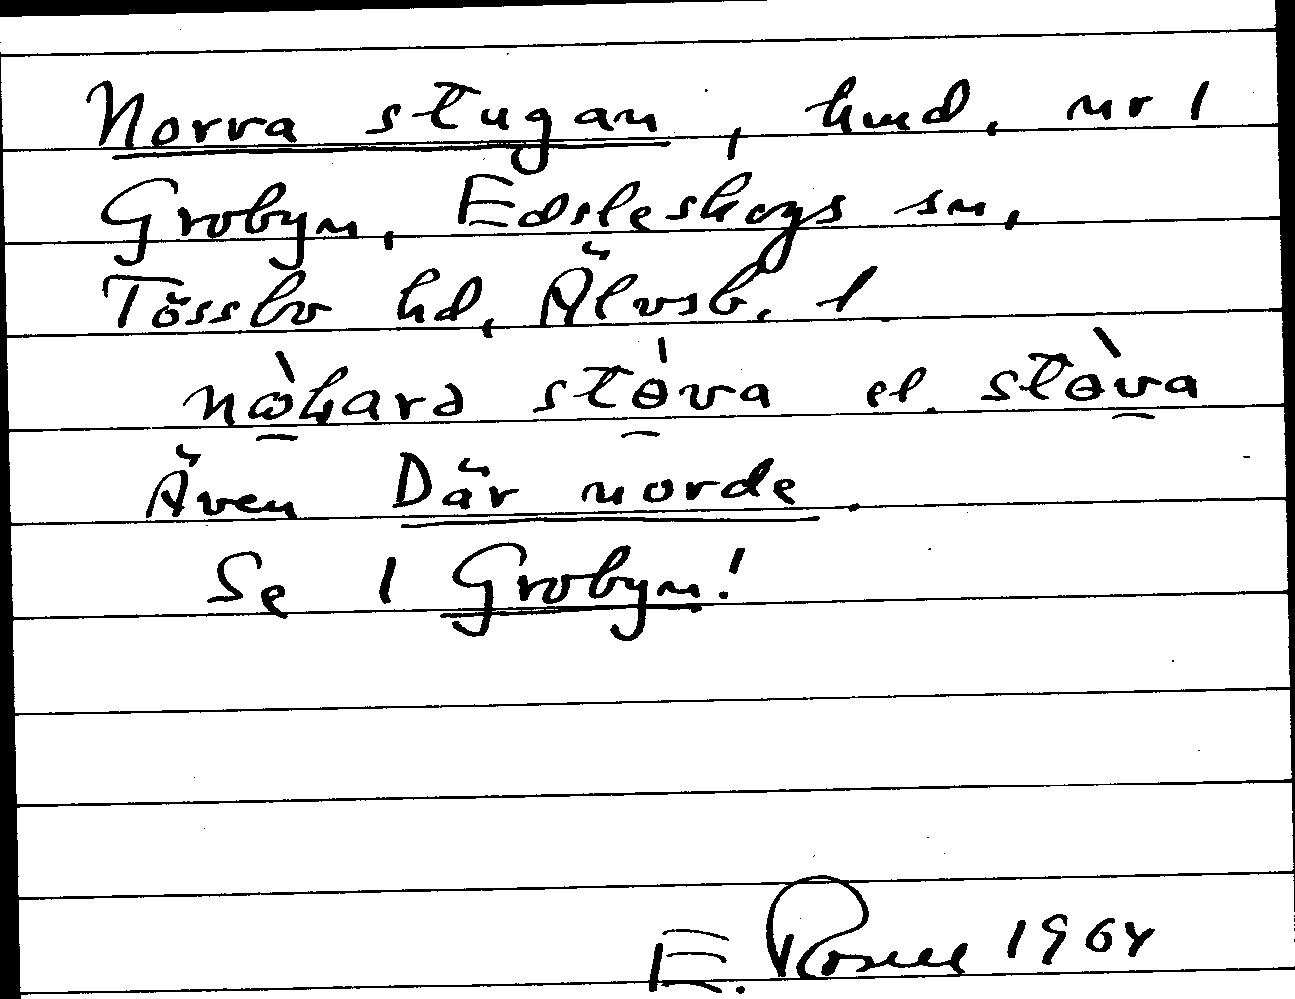 Norra stugan, hmd. nr 1
Grobyn, Edsleskogs sn,
Tössbo hd, Älvsb. l
nɷ̀harə stɵ́va el. stɵ̀va
Även Där norde.
Se 1 Grobyn!
E. Rosell 1964